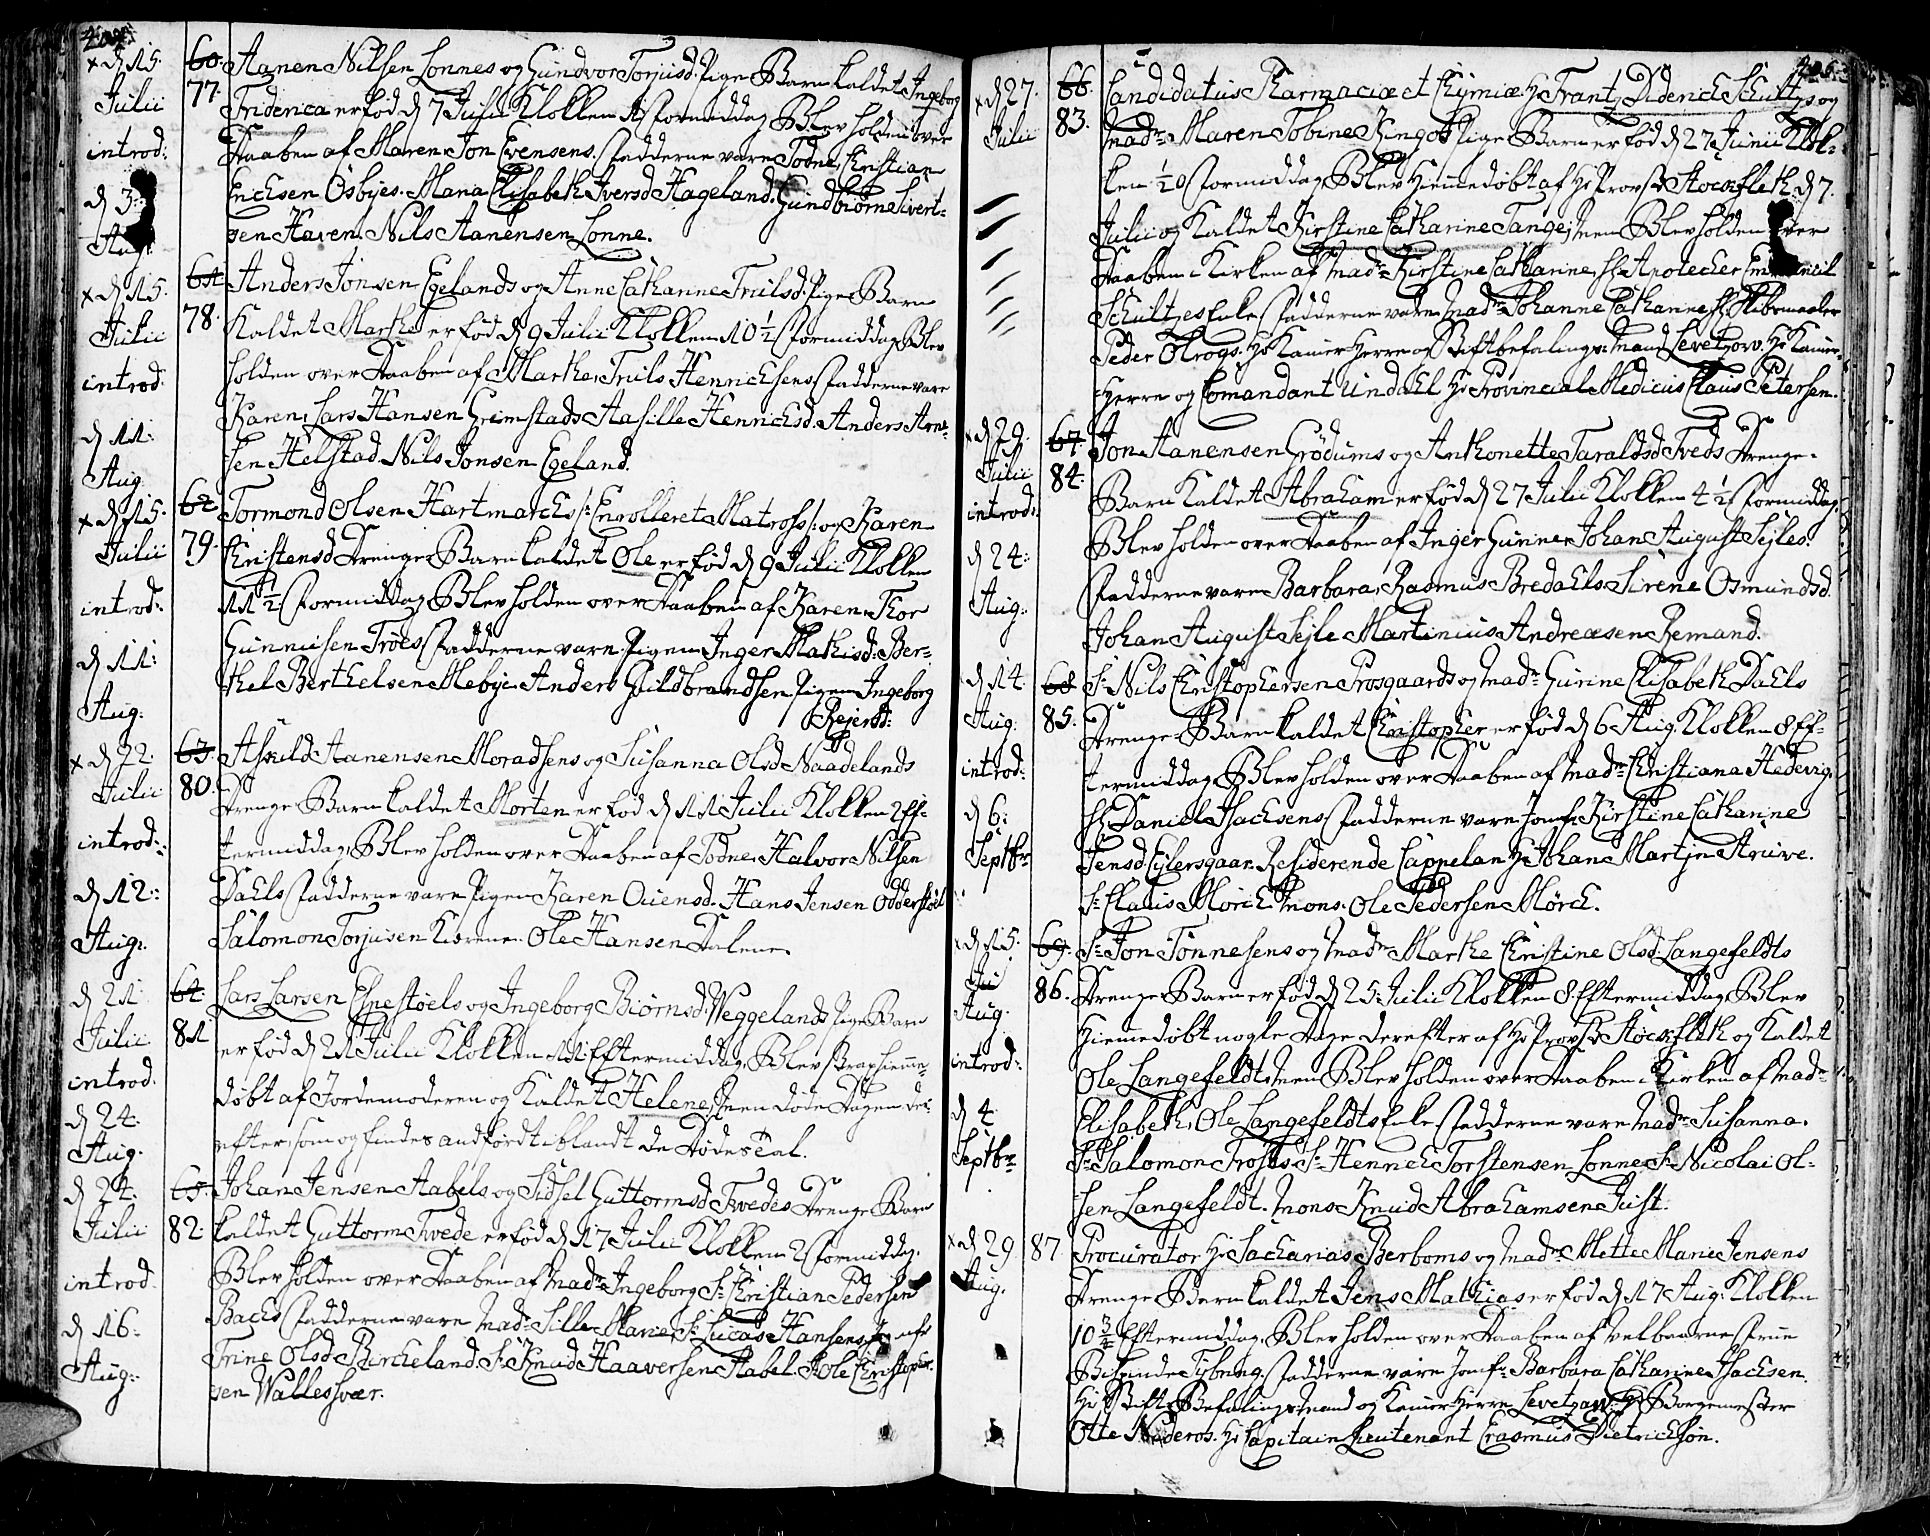 × d 15. Julii introd: d 3. Aug:
60. 77.
Aanen Nilsen Lonnes og Gundvor Torjusd: Pige Barn kaldet Ingeborg
Friderica er fød d 7 Julii Klokken Formiddag Blev holden over
Daaben af Maren Jon Evensens. Fadderne vare Todne Christian
Erichsen Osbyes. Maria Elisabeth Iversd Hageland. Gundbiørn Sivert-
sen Haven. Nils Aanensen Lonne.
× d 15. Julii introd: d 11: Aug
61 78.
Anders Jonsen Egelands og Anne Catharine Truilsd: Pige Barn
Kaldet Marthe er fød d 9 Julii Klokken 10 1/2 Formiddag Blev
holden over Daaben af Marthe Truils Henrichsens Fadderne vare
Karen Lars Hansen Grimstads Aasille Henrichsd. Anders Arn-
sen Helstad Nils Jonsen Egeland.
× d 15. Julii introd: d 11: Aug:
62 79.
Tormond Olsen Hartmarchs /: Enrolleret Matross :/ og Karen
Christensd Drenge Barn kaldet Ole er fød d 9 Julii Klokken
11 1/2 Formiddag Blev holden over Daaben af Karen Thor
Gunnuisen Troes Fadderne vare Pigen Inger Mathisd: Ber-
thel Berthelsen Mebye. Anders Guldbrandsen Pigen Ingeborg
Rejersd:
× d 22. Julii introd: d 12: Aug:
63. 80.
Asuld Aanensen Moradsens og Susanna Olsd Naadelands
Drenge Barn kaldet Morten er fød d 11 Julii Klokken 2 Ef-
termiddag, Blev holden over Daaben af Todne Halvor Nilsen
Dahls Fadderne vare Pigen Karen Ouensd. Hans Jensen Odderstøel
Salomon Torjusen Ole Hansen Dalene.
d 21 Julii introd. d 24. Aug.
64 81
Lars Larsen Egnestøels og Ingeborg Biørnsd: Weggelands Pige Barn
er fød d 21 Julii Klokken 11 Eftermiddag, Blev Strax hieme-
døbt af Jordemoderen og Kaldet Helene, Men døde Dagen der-
efter, som og findes andført iblandt de Dødes Tal.
d 24. Julii introd. d 16: Aug:
65. 82.
Johan Jensen Aabels og Sidsel Guttormsd Tvedes Drenge Barn
kaldet Guttorm Tvede er fød d 17 Julii Klokken 2 Formiddag.
Blev holden over Daaben af Madr: Ingeborg Sr: Christian Pedersens
Bachs Fadderne vare Madr: Sille Marie Sr: Lucas Hansens, Jomfr
Trine Olsd Bircheland. Sr: Knud Haaversen Aabel. Sr: Ole Christopher-
sen Wallessvær.
× d 27. Julii
66. 83.
Candidatus Farmaciæ et Chymiæ Hr Frantz Diderich Schultzes og
Madr: Maren Tobine Ringos Pige Barn er fød d 27 Junii Klok-
ken 1/2 0 Formiddag Blev Hiemedøbt af Hr Provst Stockfleth d 7.
Julii og Kaldet Kirstine Catharine Tange, Men Blev holden over
Daaben i Kirken af Madr: Kirstine Catharine, Sl: Apotecher Emanuel
Schultzes Enke Fadderne vare Madr: Johanne Catharine, Sl: Skibsmaaler
Peder Olrogs. Hr Kamer Herre og Stiftbefalings Mand Levetzow. Hr Kamer-
Herre og Comandant Undahl Hr Provincial Medicus Claus Petersen.
× d 29. Julii introd: d 24: Aug:
67. 84.
Jon Aanensen Grødums og Anthonette Taraldsd Tveds Drenge-
Barn Kaldet Abraham er fød d 27 Julii Klokken 4 1/2 Formiddag,
Blev holden over Daaben af Inger Gunner Johan August Sejles.
Fadderne vare Barbara Rasmus Bredahls Sirene Osmundsd.
Johan August Sejle Martinius Andreæsen Remand.
d 14. Aug: introd: d 6: Septbr
68 85.
Sr: Nils Christophersen Prosgaards og Madr: Gurine Elisabeth Dahls
Drenge Barn kaldet Christopher er fød d 6 Aug: Klokken 8 Ef-
termiddag, Blev holden over Daaben af Madr: Christiana Hedevig,
Sl: Daniel Isachsens Fadderne vare Jomfr: Kirstine Catharine
Jensd: Eilersgaar. Residerende Cappelan Hr Johan Martin Arúve.
Sr: Claus Mørch Mons: Ole Pedersen Mørch.
d 15. Ju Aug. introd: d 4. Septbr
69. 86.
Sr: Jon Tønnesens og Madr: Marthe Christine Olsd: Langefeldts
Drenge Barn er fød d 25. Julii Klokken 8 Eftermiddag, Blev
Hiemedøbt nogle Dage derefter af Hr Provst Stockfleth og Kaldet
Ole Langefeldt, Men Blev holden over Daaben i Kirken af Madr:
Elisabeth, Ole Langefeldts Enke Fadderne vare Madr: Susanna.
Sr: Salomon Trosts Sr: Henrich Torstensen Lonne Sr: Nicolai Ol-
sen Langefeldt. Mons: Knud Abrahamsen Just.
× d 29 Aug.
87
Procurator Hr Sacharias Berboms og Madr: Mette Marie Jensens
Drenge Barn kaldet Jens Mathias er fød d 17 Aug: Klokken
10 3/4 Eftermiddag, Blev holden over Daaben af Velbaarne Frue
Bispinde Tybring. Fadderne vare Jomfr: Barbara Catharine Isachsen.
Hr Stift Befalings Mand og Kamer Herre Levetzow. Hr Borgemester
Otte Næderos. Hr Capitain Lieutenant Erasmus Dietrichson.